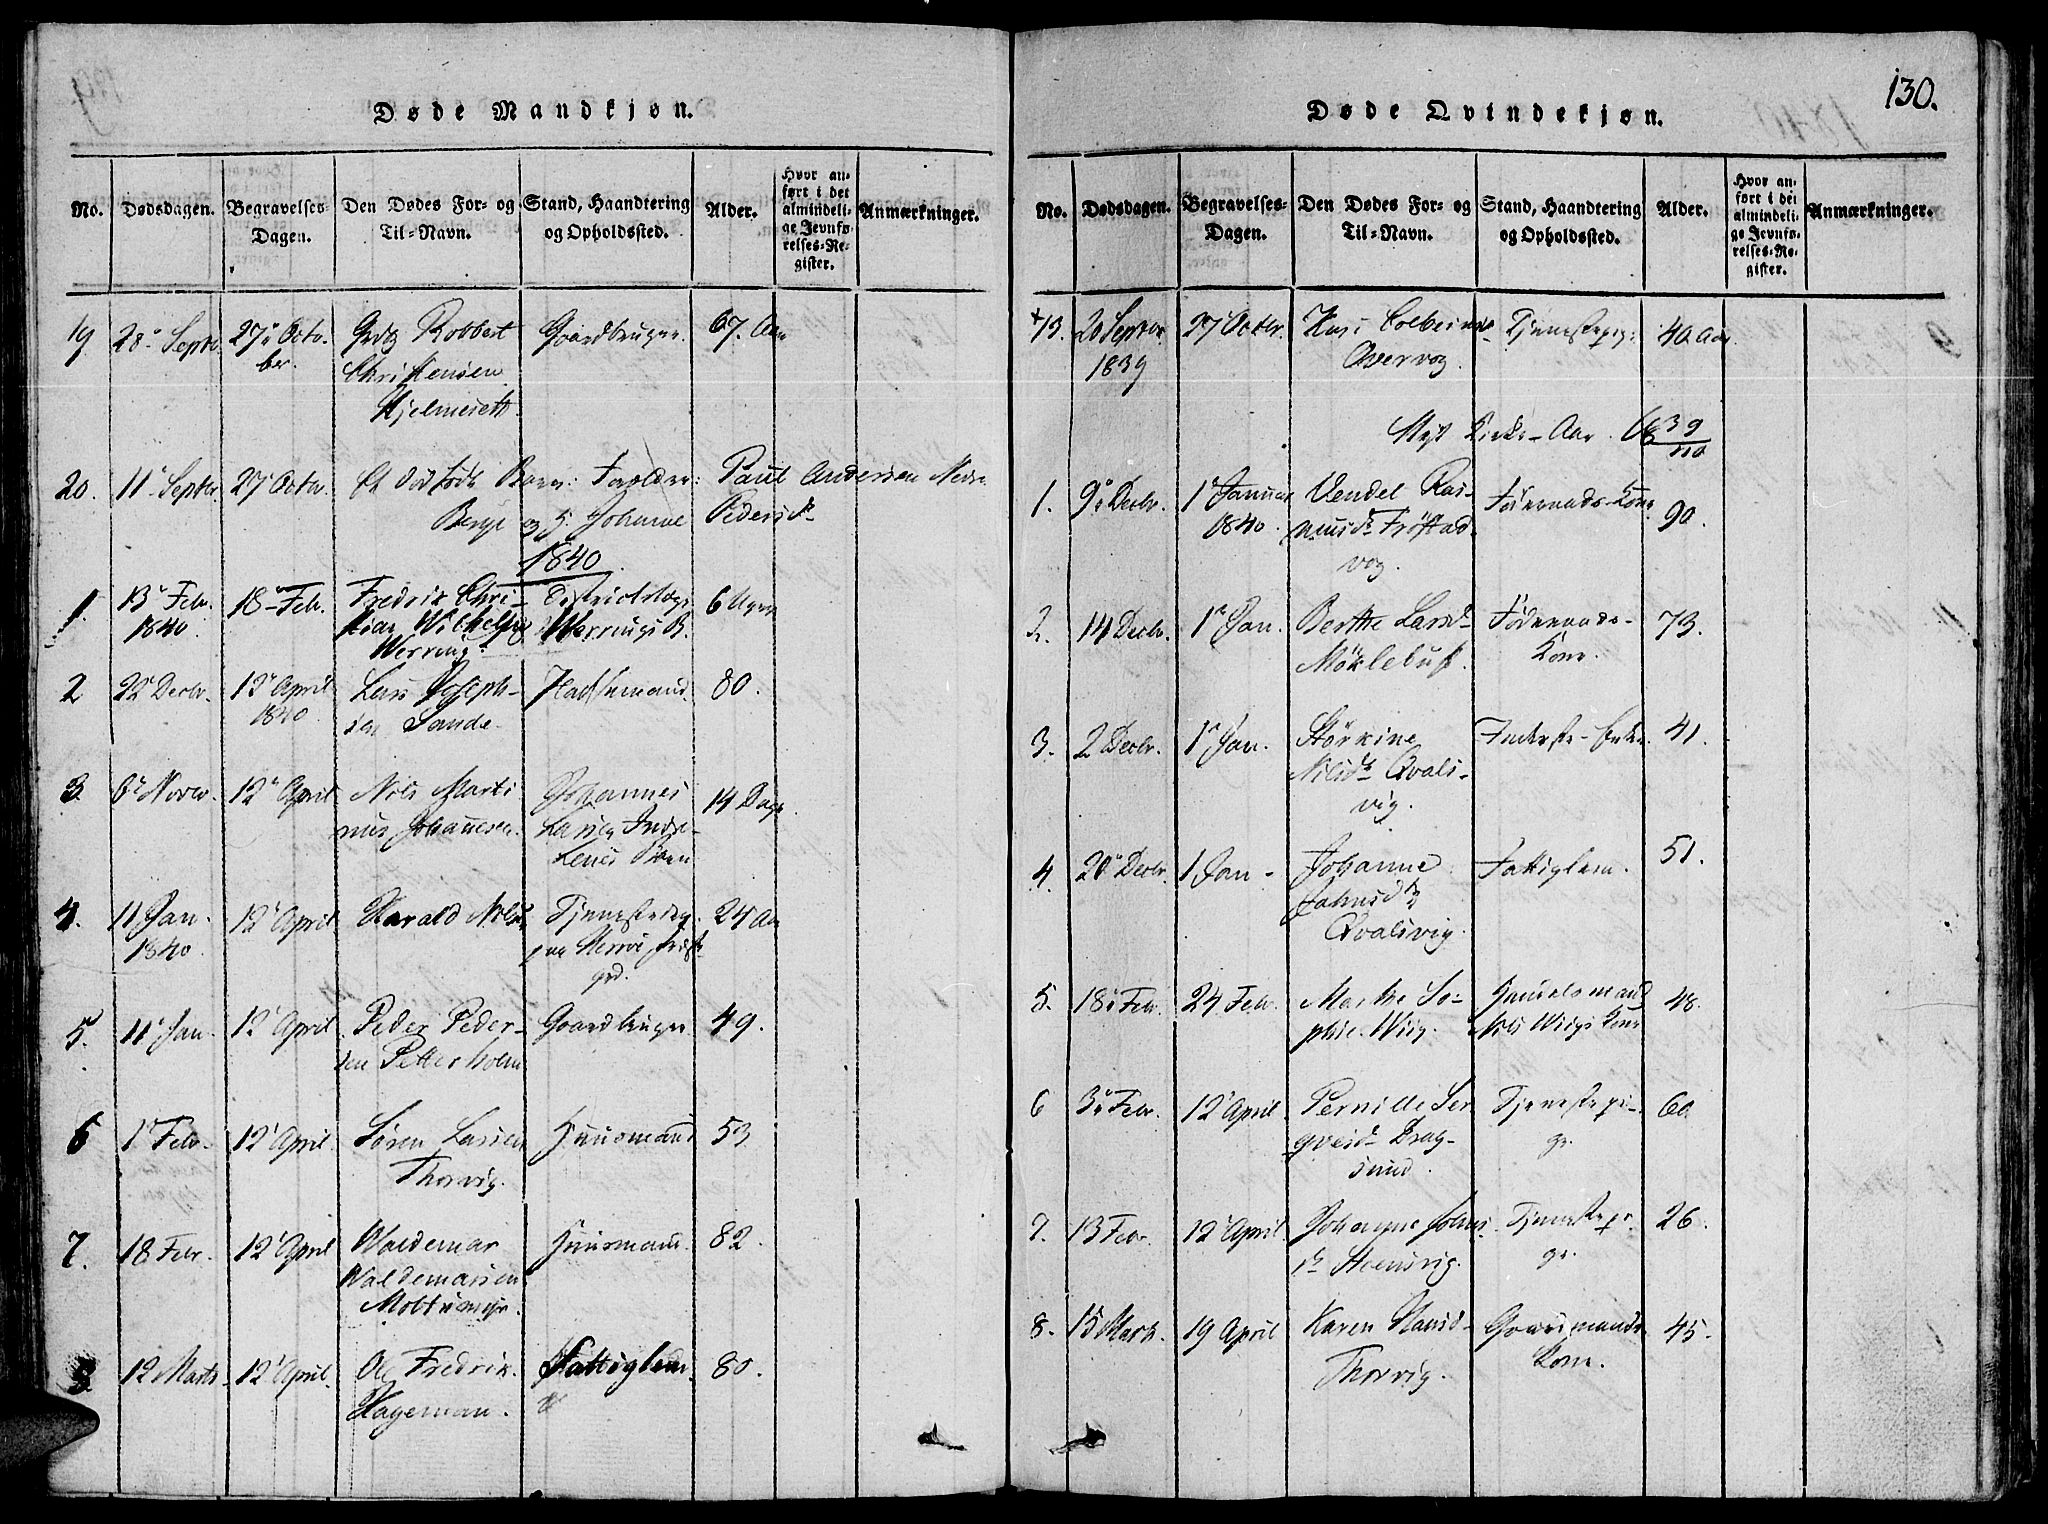 130.
Døde Mandkjøn.
No. Dødsdagen. Begravelses-Dagen. Den Dødes For- og Til-Navn. Stand, Haandtering og Opholdssted. Alder. Hvor anført i det almindelige Jevnførelses-Register. Anmærkninger.
19 28 Septr 27 October. Robbert Gaardbruger 67. Aar
Christensen
Hjelmeseth.
20. 11 Septbr 27 Octbr Et dødfødt Barn: Forældre: Paul Andersen Nedre
Berge og Johanne Pedersdr
1840
1. 13 Febr. 18 Febr. Fredrik Chri- Districtslæge 6 Uger
1840. stian Wilhelm Werrings B.
Werring.
2 22 Decbr. 12 April Lars Joseph- 80.
1840. sen Sande.
3. 6 Novbr. 12 April Nils Marti Johannes 14 Dage
nus Johannesen. Larsen Indre-
Barn
4. 11 Jan. 12 April Harald Nils. Tjenestedreng 24 Aar
1840. paa
grd.
5. 11 Jan. 12 April Peder Peder- Gaardbruger 49.
sen Petterholm
6 1 Febr. 12 April Søren Larsen Huusmand 53
Thorvig.
7. 18 Febr. 12 April Waldemar Huusmand. 82.
Waldemarsen
Moltumyr.
8. 12 Marts 12 April. Ole Fredrik Fattiglem 80.
Hageman.
Døde Qvindekjøn.
No. Dødsdagen. Begravelses-Dagen. Den Dødes For- og Til-Navn. Stand, Haandtering og Opholdssted. Alder. Hvor anført i det almindelige Jevnførelses-Register. Anmærkninger.
13. 20 Septbr 27 Octbr. Kari Tjenestepige 40 Aar
1839 Overvog.
Nyt Kirke-Aar 1839/40
1. 9 Decbr. 1 Januar Vendel Ras- Føderaads-Kone 90.
1840. musdr Frøstad-
vog.
2. 14 Decbr. 1 Jan. Berthe Larsd- Føderaads- 73.
Møklebust. Kone.
3. 2 Decbr. 1 Jan. Størkine Inderste-Enke 41.
Nilsdr Qvals-
vig.
4. 20 Decbr. 1 Jan- Johanne Fattiglem. 51.
Johnsdr
Qvalsvig.
5. 18 Febr. 24 Febr. Marthe So- Handelsmand 48.
phie Wiig. Nils Wiigs Kone
6 3 Febr. 12 April. Pernille Ser Tjenestepi- 60.
qvesdr Drag- ge.
sund.
7. 13 Febr. 12 April Johanne Johns- Tjenestepi- 26.
dr Steinsvig. ge.
8. 15 Marts. 19 April Karen Hansd- Gaardmands 45.
Thorvig. Kone.